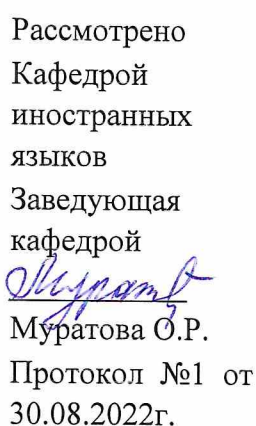 Рассмотрено
Кафедрой
иностранных
языков
Заведующая
кафедрой
Мурат
Муратова О.Р.
Протокол №1 от
30.08.2022г.